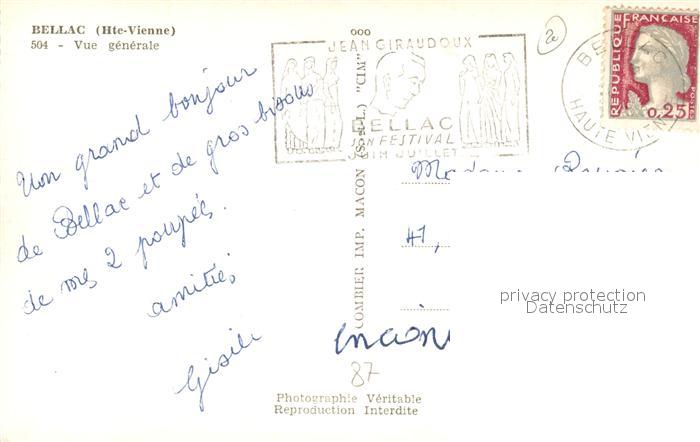 BELLAC (Hte-Vienne)
504 - Vue générale
Un grand bonjour
de Bellac et de gros bisous
de mes 2 poupées.
amitiés
Gisèle
COMBIER IMP. MACON (S.-et-L.) "CIM"
ooo
JEAN GIRAUDOUX
BELLAC
SON FESTIVAL
JUIN JUILLET
2e
BELLAC
HAUTE VIENNE
REPUBLIQUE FRANÇAISE
POSTES
0,25
Madame
41,
87
privacy protection
Datenschutz
Photographie Véritable
Reproduction Interdite